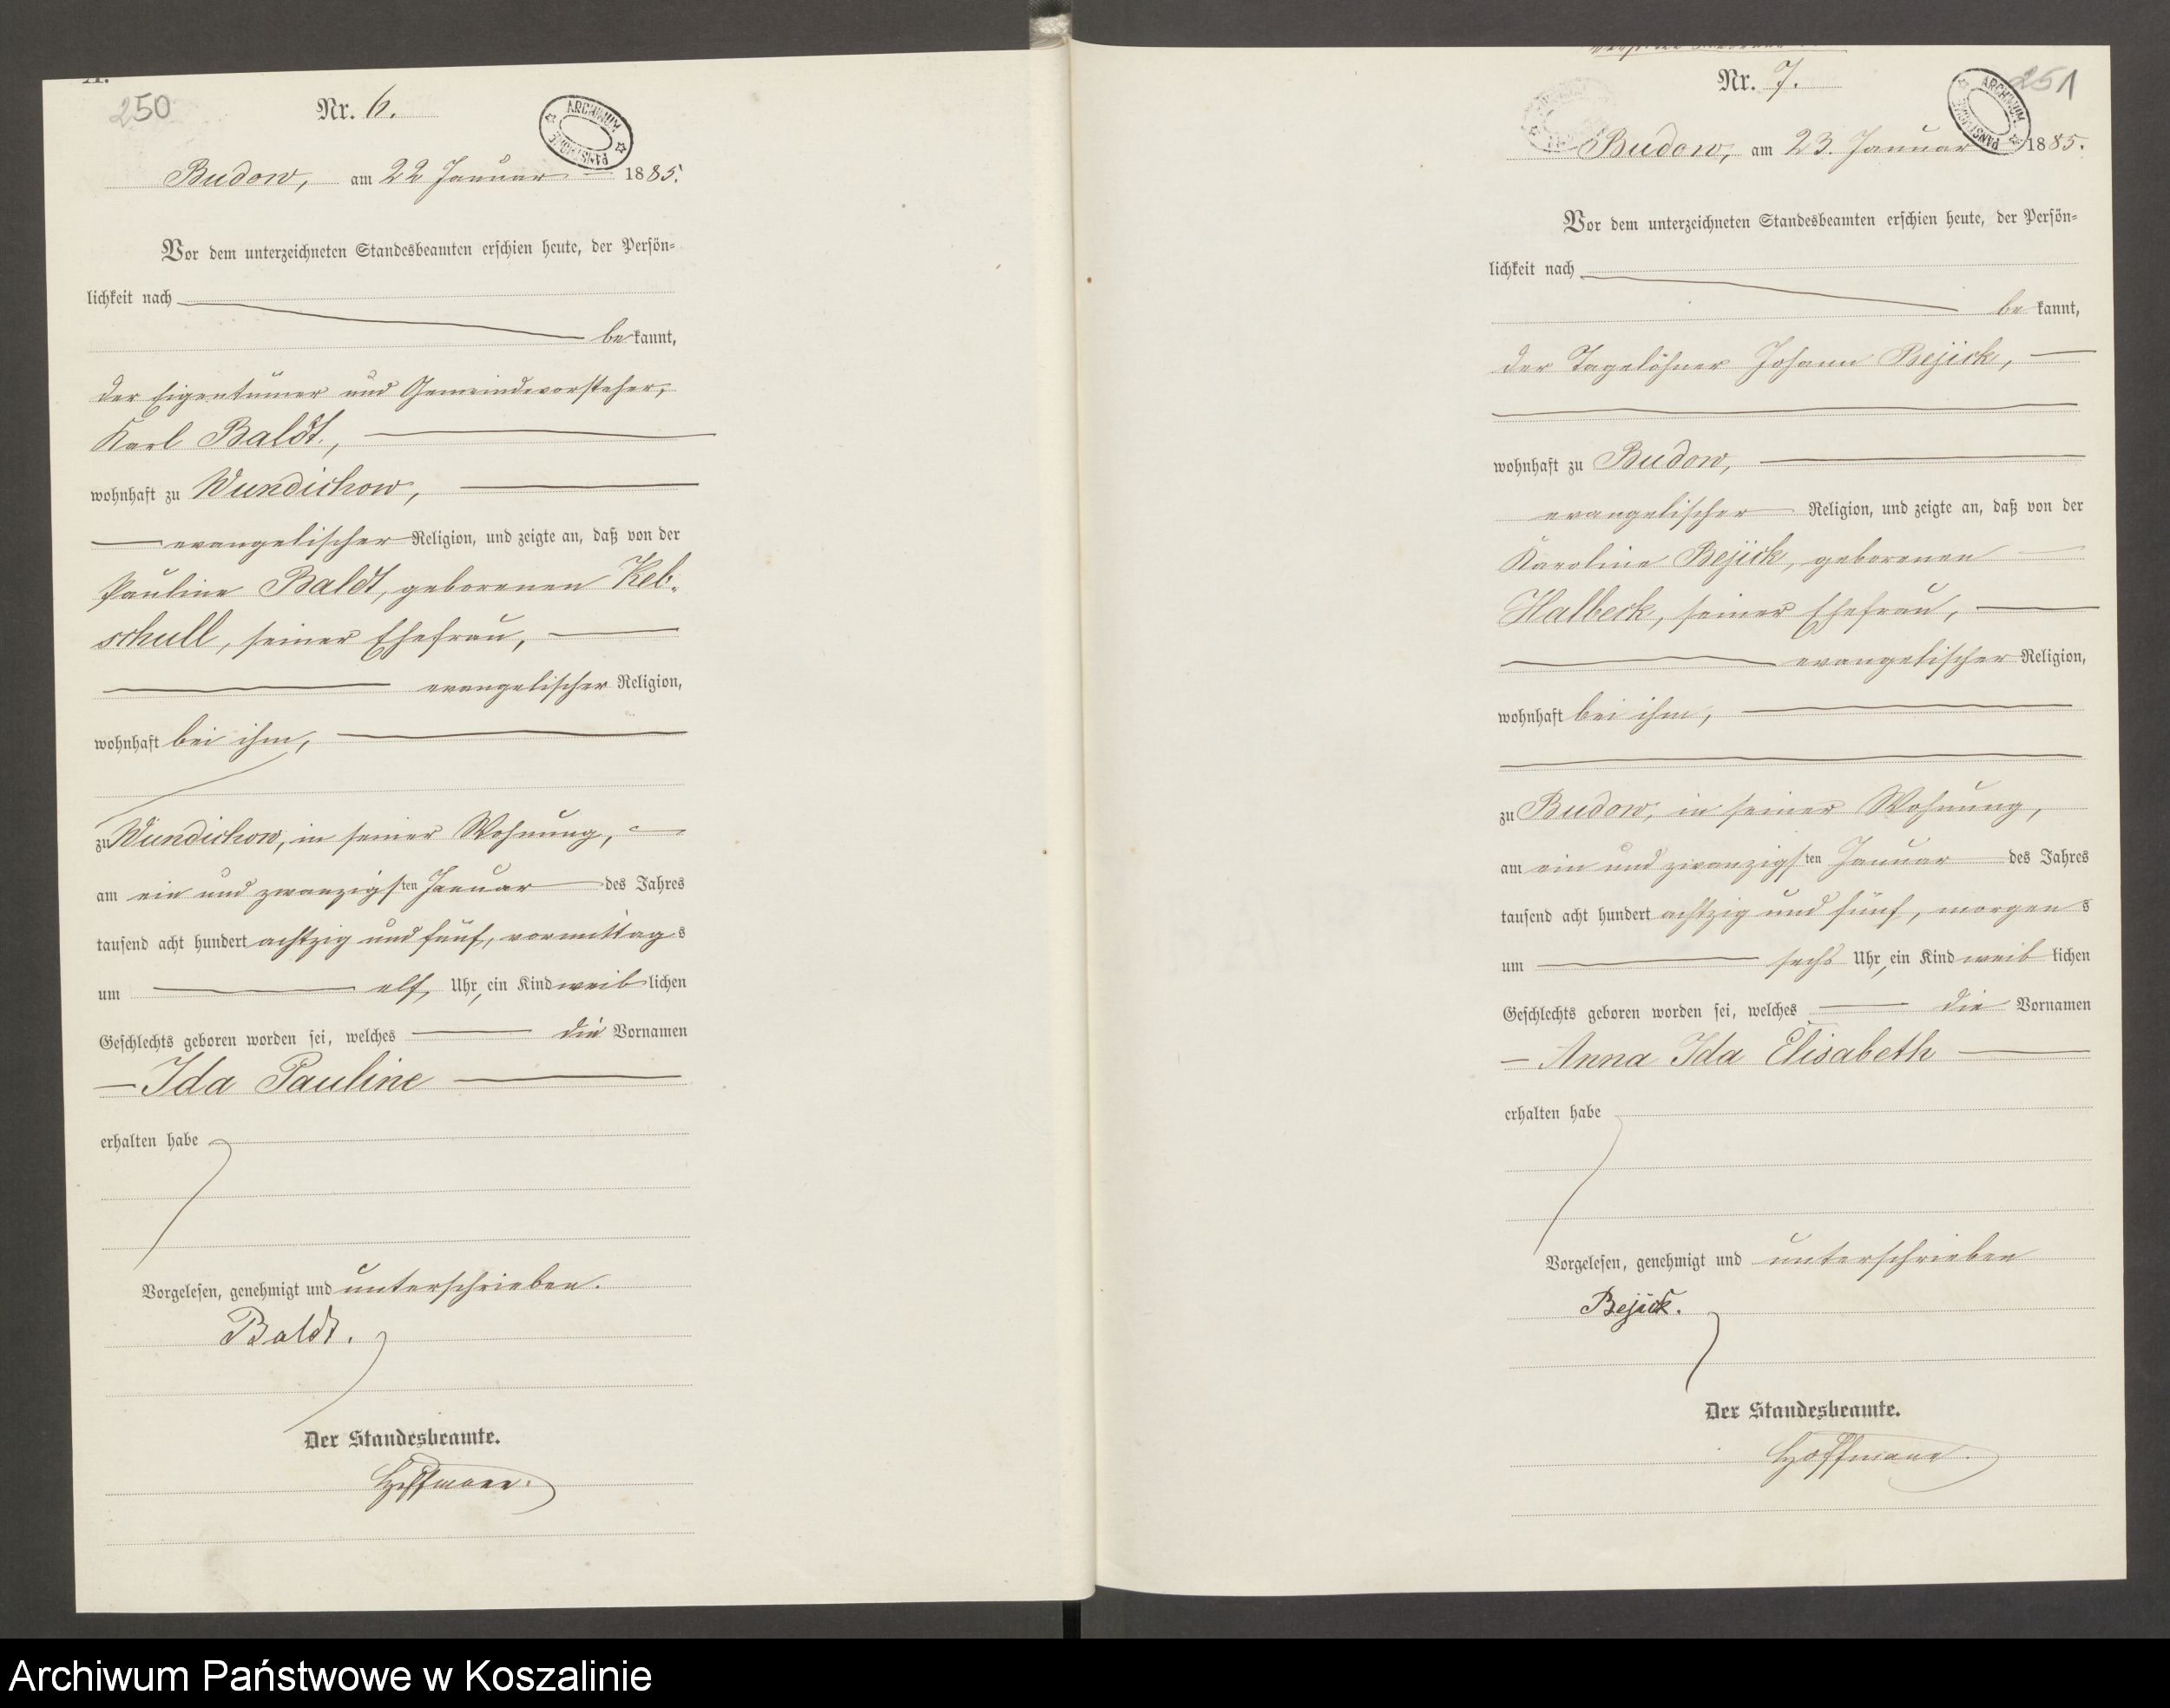 250
Nr. 6.
ARCHIWUM PAŃSTWOWE
Budow, am 22 Januar 1885.
Vor dem unterzeichneten Standesbeamten erschien heute, der Persön=
lichkeit nach
bekannt,
der Eigentümer und Gemeindevorsteher,
Karl Baldt,
wohnhaft zu Wundichow,
evangelischer Religion, und zeigte an, daß von der
Pauline Baldt, geborenen Reb-
schull, seiner Ehefrau,
evangelischer Religion,
wohnhaft bei ihm,
zu Wundichow, in seiner Wohnung,
am ein und zwanzigsten Januar des Jahres
tausend acht hundert achtzig und fünf, vormittags
um elf Uhr, ein Kind weiblichen
Geschlechts geboren worden sei, welches die Vornamen
Ida Pauline
erhalten habe
Vorgelesen, genehmigt und unterschrieben.
Baldt.
Der Standesbeamte.
Hoffmann.
251
Nr. 7.
ARCHIWUM PAŃSTWOWE
Budow, am 23. Januar 1885.
Vor dem unterzeichneten Standesbeamten erschien heute, der Persön=
lichkeit nach
bekannt,
der Tagelöhner Johann Bejick,
wohnhaft zu Budow,
evangelischer Religion, und zeigte an, daß von der
Karoline Bejick, geborenen
Halbeck, seiner Ehefrau,
evangelischer Religion,
wohnhaft bei ihm,
zu Budow, in seiner Wohnung,
am ein und zwanzigsten Januar des Jahres
tausend acht hundert achtzig und fünf, morgens
um sechs Uhr, ein Kind weiblichen
Geschlechts geboren worden sei, welches die Vornamen
Anna Ida Elisabeth
erhalten habe
Vorgelesen, genehmigt und unterschrieben
Bejick.
Der Standesbeamte.
Hoffmann.
Archiwum Państwowe w Koszalinie